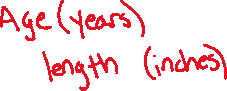 Age (years)
length (inches)